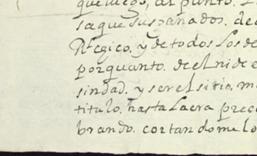 que luego, al punto. L
saque sus pañados. de
Regico. y de todos los de
por quanto. de el nide e
sindad. y ser el sitio, m
titulo. hasta la cra prec
brando. cortandome lo